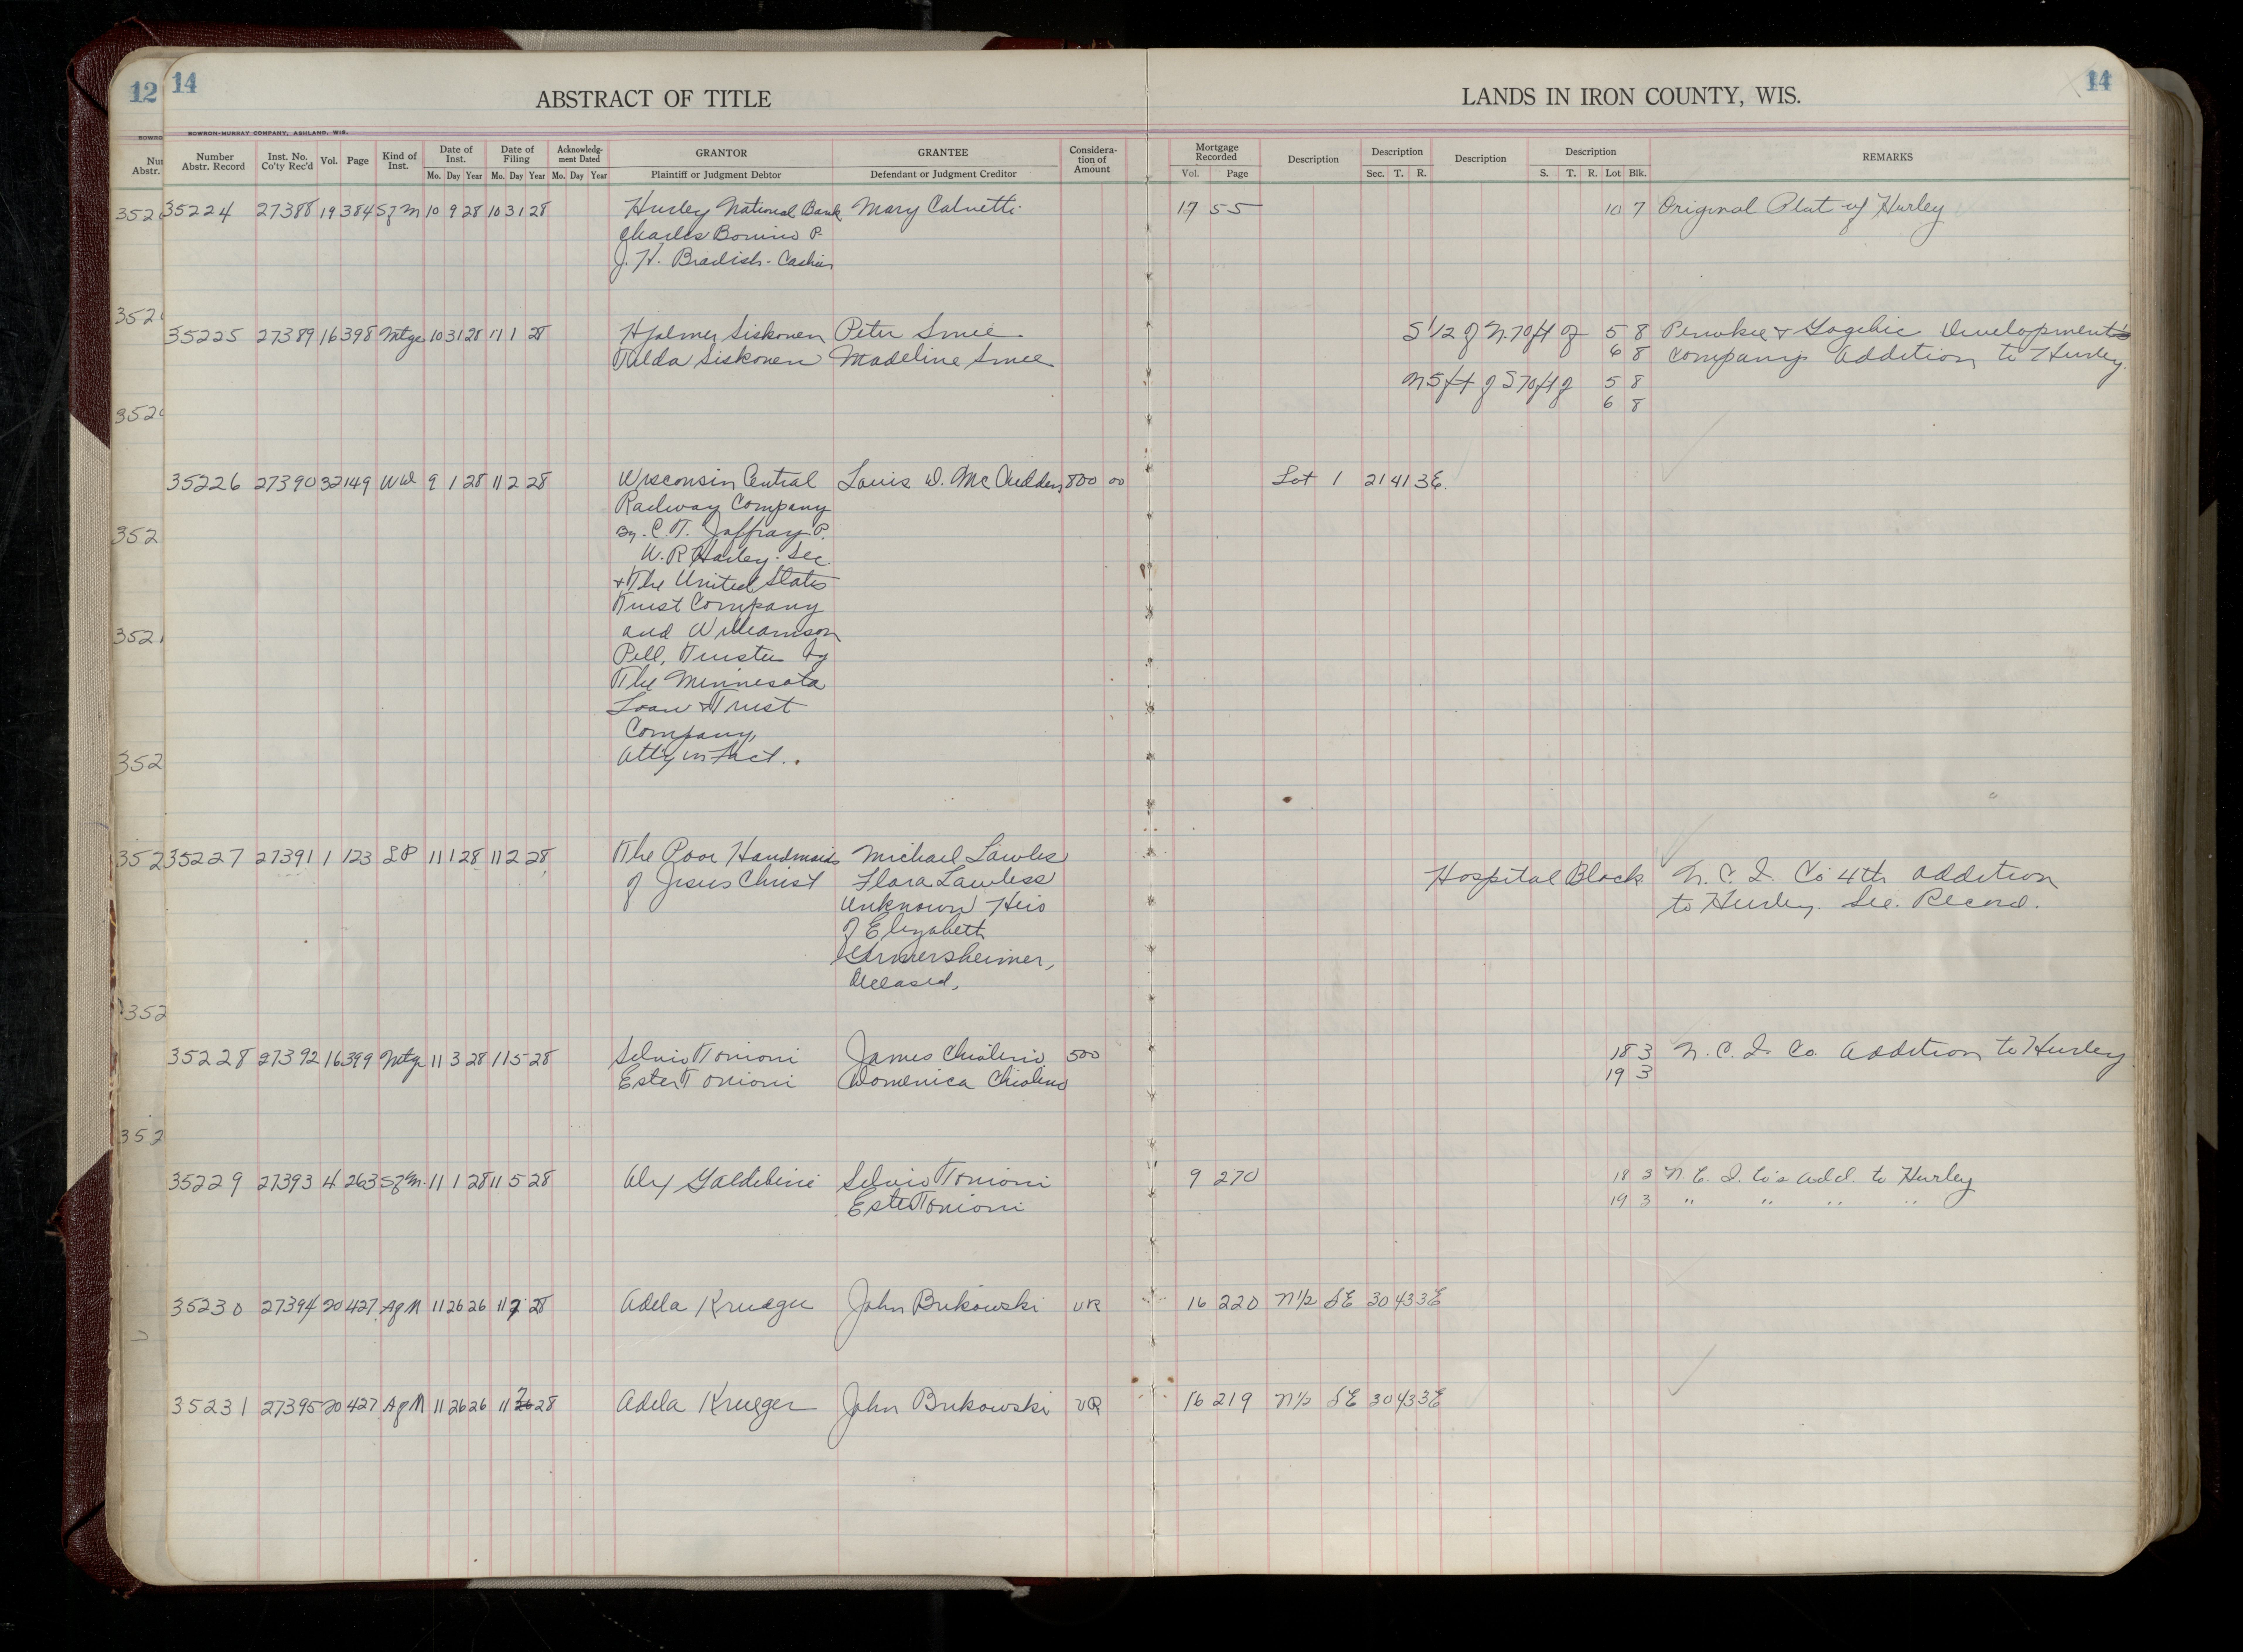 12 14 14
ABSTRACT OF TITLE LANDS IN IRON COUNTY, WIS.
BOWRON-MURRAY COMPANY, ASHLAND, WIS.
Number Abstr. Record Inst. No. Co'ty Rec'd Vol. Page Kind of Inst. Date of Inst. Mo. Day Year Date of Filing Mo. Day Year Acknowledg-ment Dated Mo. Day Year GRANTOR Plaintiff or Judgment Debtor GRANTEE Defendant or Judgment Creditor Considera-tion of Amount Mortgage Recorded Vol. Page Description Description Sec. T. R. Description Description S. T. R. Lot Blk. REMARKS
35224 27388 19 384 Sf M 10 9 28 10 31 28 Hurley National Bank Mary Calvetti 17 55 10 7 Original Plat of Hurley
Charles Bonino P.
J. H. Bradish - Cashier
35225 27389 16 398 Mtge 10 31 28 11 1 28 Hjalmer Siskonen Peter Smee S 1/2 of N. 70 ft of 5 8 Penokee & Gogebic Development's
Tilda Siskonen Madeline Smee 6 8 Company's Addition to Hurley
N 5 ft of S 70 ft of 5 8
6 8
35226 27390 32 149 WD 9 1 28 11 2 28 Wisconsin Central Louis D. McCudden 800 00 Lot 1 21 41 3E.
Railway Company
By. C. T. Jaffray P.
W. R. Harley. Sec.
& The United States
Trust Company
and Williamson
Pell, Trustee by
The Minnesota
Loan & Trust
Company,
Atty in Fact.
35227 27391 1 123 LP 11 1 28 11 2 28 The Poor Handmaids Michael Lawless
of Jesus Christ Flora Lawless Hospital Block N. C. I. Co 4th Addition
Unknown Heirs to Hurley. See. Record.
of Elizabeth
Germersheimer,
Deceased,
35228 27392 16 399 Mtge 11 3 28 11 5 28 Selvio Tonioni James Chiolino 500 18 3 N. C. I. Co. Addition to Hurley
Ester Tonioni Domenica Chiolino 19 3
35229 27393 4 263 Sf M. 11 1 28 11 5 28 Alex Selvio Tonioni 9 270 18 3 N. C. I. Co's Add. to Hurley
Ester Tonioni 19 3 " " " "
35230 27394 20 427 Af M 11 26 26 11 7 28 Adela Krueger John Bukowski VR 16 220 N 1/2 SE 30 43 3E
35231 27395 20 427 Af M 11 26 26 11 7 28 Adela Krueger John Bukowski VR 16 219 N 1/2 SE 30 43 3E